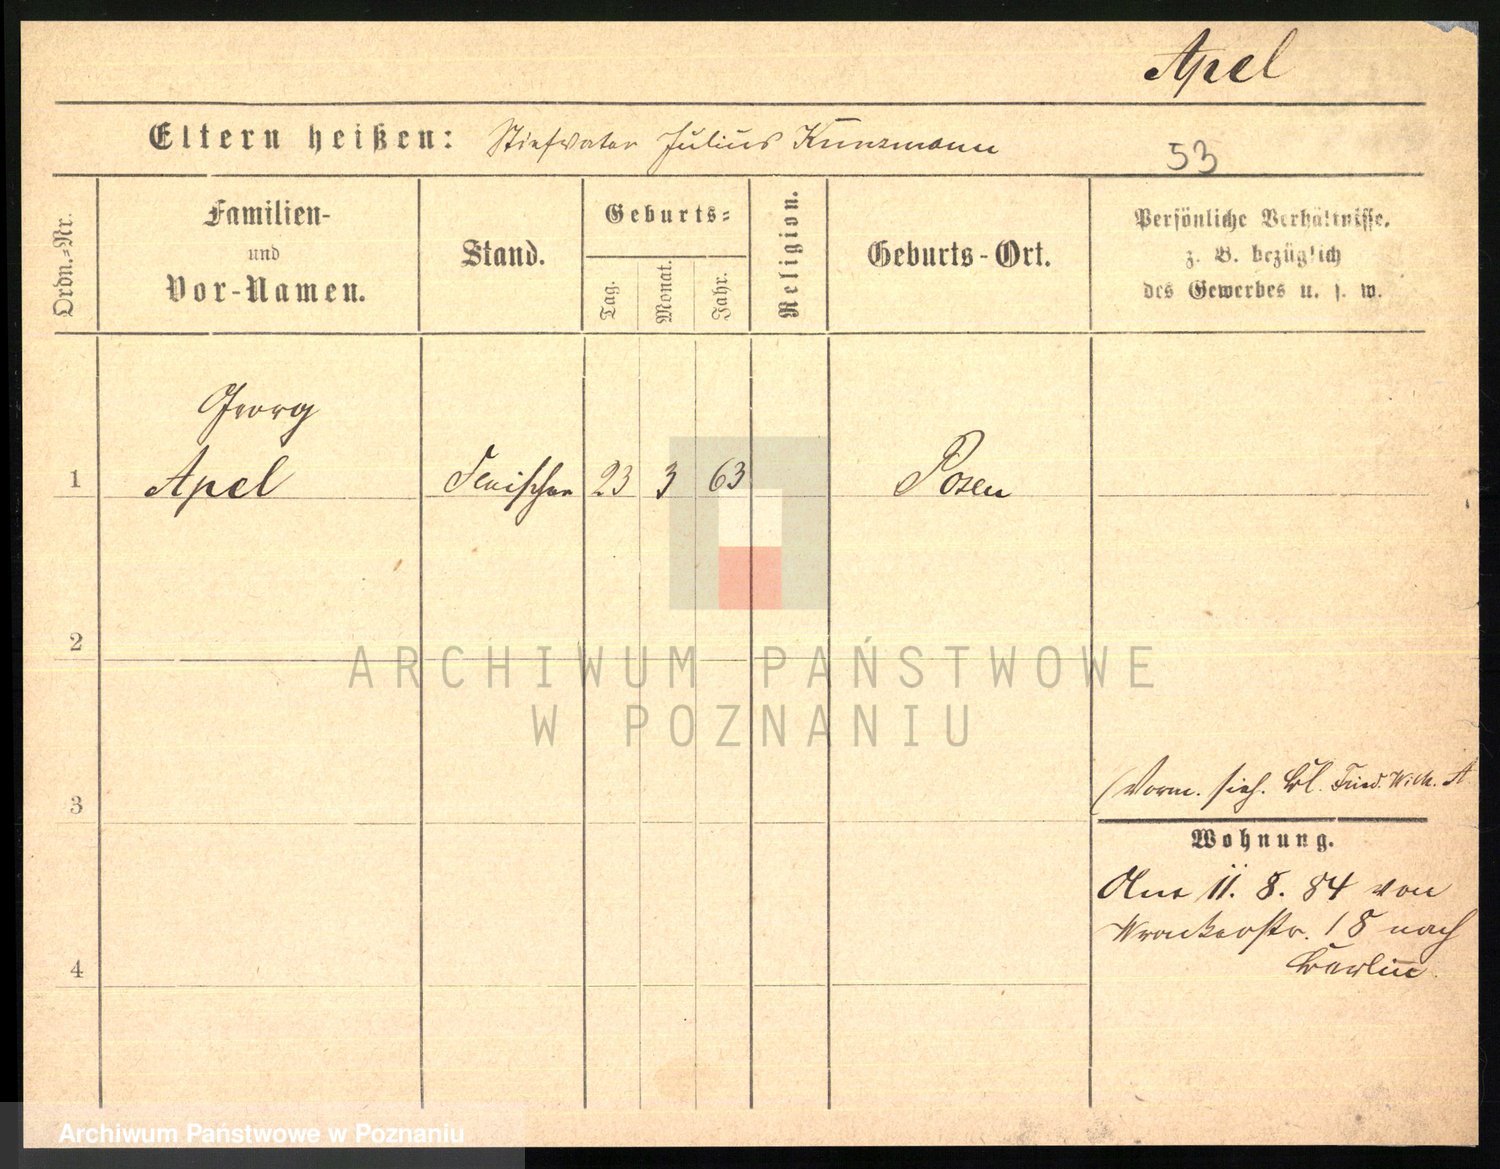 Apel
Eltern heißen: Stiefvater Julius Kunzmann
53
Ordn.=Nr.
Familien-
und
Vor-Namen.
Stand.
Geburts=
Tag.
Monat.
Jahr.
Religion.
Geburts-Ort.
Persönliche Verhältnisse.
z. B. bezüglich
des Gewerbes u. s. w.
Georg
1 Apel Fleischer 23 3 63 Posen
2
ARCHIWUM PAŃSTWOWE
W POZNANIU
3
(Vorm. sieh. Bl. Fried. Wilh. A
Wohnung.
11. 8. 84 von
Wronkerstr. 18 nach
4
Berlin.
Archiwum Państwowe w Poznaniu